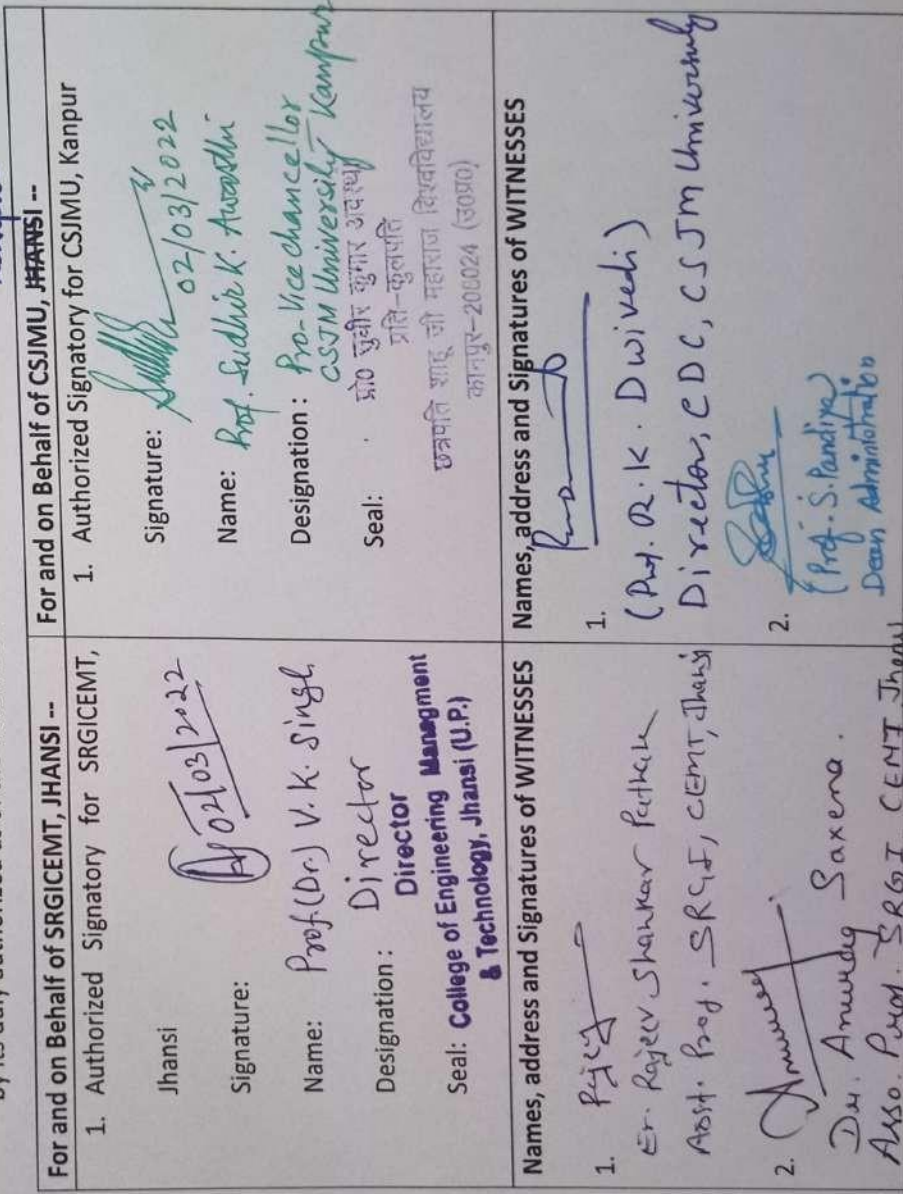 For and on Behalf of SRGICEMT, JHANSI --
1. Authorized Signatory for SRGICEMT,
Jhansi
Signature: 02/03/2022
Name: Prof.(Dr.) V.K. Singh
Designation: Director
Director
Seal: College of Engineering Managment
& Technology, Jhansi (U.P.)
For and on Behalf of CSJMU, JHANSI --
1. Authorized Signatory for CSJMU, Kanpur
Signature: 02/03/2022
Name: Prof. Sudhir K. Awasthi
Designation: Pro-Vice chancellor
CSJM University Kanpur
Seal: प्रो० सुधीर कुमार अवस्थी
प्रति-कुलपति
छत्रपति शाहू जी महाराज विश्वविद्यालय
कानपुर-208024 (उ०प्र०)
Names, address and Signatures of WITNESSES
1. Rajeev
Er. Rajeev Shankar Pathak
Asst. Prof. SRGI, CEMT, Jhansi
2.
Dr. Anurag Saxena.
Asso. Prof. SRGI CEMT Jhansi
Names, address and Signatures of WITNESSES
1.
(Prof. R.K. Dwivedi)
Director, CDC, CSJM University
2.
(Prof. S. Pandiya)
Dean, Administration